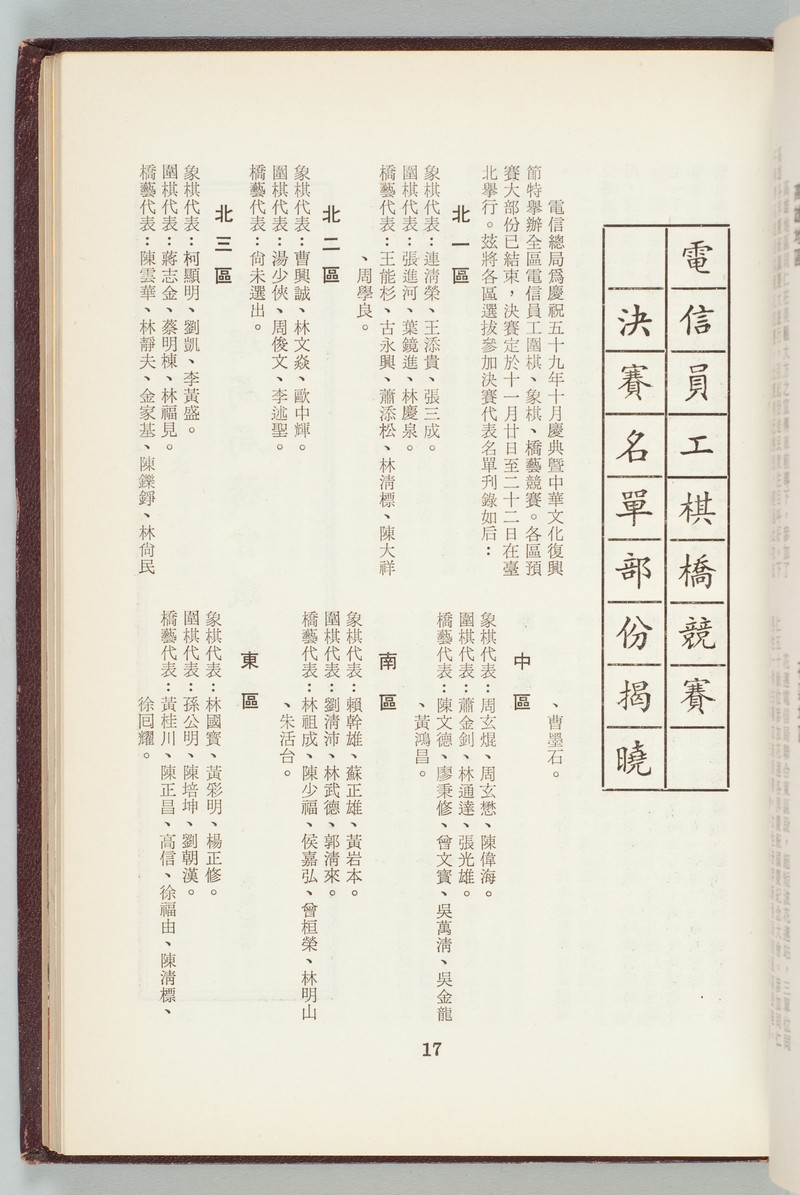 電信員工棋橋競賽
決賽名單部份揭曉
電信總局爲慶祝五十九年十月慶典暨中華文化復興
節特舉辦全區電信員工圍棋、象棋、橋藝競賽。各區預
賽大部份已結束，決賽定於十一月廿日至二十二日在臺
北舉行。玆將各區選拔參加決賽代表名單刋錄如后：
北一區
象棋代表：連淸榮、王添貴、張三成。
圍棋代表：張進河、葉鏡進、林慶泉。
橋藝代表：王能杉、古永興、蕭添松、林淸標、陳大祥
、周學良。
北二區
象棋代表：曹興誠、林文焱、歐中輝。
圍棋代表：湯少俠、周俊文、李逑聖。
橋藝代表：尙未選出。
北三區
象棋代表：柯顯明、劉凱、李黃盛。
圍棋代表：蔣志金、蔡明棟、林福見。
橋藝代表：陳雲華、林靜夫、金家基、陳鑠錚、林尙民
、曹墨石。
中區
象棋代表：周玄焜、周玄懋、陳偉海。
圍棋代表：蕭金釗、林通達、張光雄。
橋藝代表：陳文德、廖秉修、曾文寶、吳萬淸、吳金龍
、黃鴻昌。
南區
象棋代表：賴幹雄、蘇正雄、黃岩本。
圍棋代表：劉淸沛、林武德、郭淸來。
橋藝代表：林祖成、陳少福、侯嘉弘、曾桓榮、林明山
、朱活台。
東區
象棋代表：林國寶、黃彩明、楊正修。
圍棋代表：孫公明、陳培坤、劉朝漢。
橋藝代表：黃桂川、陳正昌、高信、徐福由、陳淸標、
徐囘耀。
17